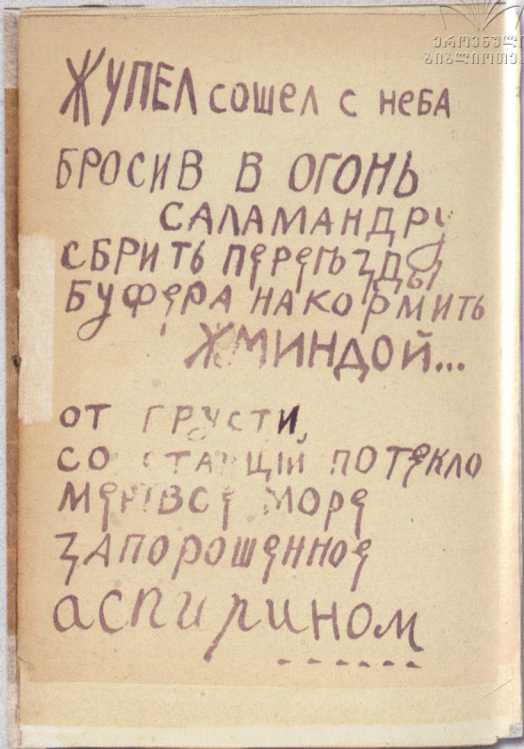 ეროვნული
ბიბლიოთეკა
ЖУПЕЛ сошел с неба
БРОСИВ В ОГОНЬ
САЛАМАНДРУ
СБРИТЬ ПЕРЕЕЗДЫ
БУФЕРА НАКОРМИТЬ
ЖМИНДОЙ...
ОТ ГРУСТИ,
СО СТАНЦІЙ ПОТЕКЛО
МЕРТВОЕ МОРЕ
ЗАПОРОШЕННОЕ
аспирином